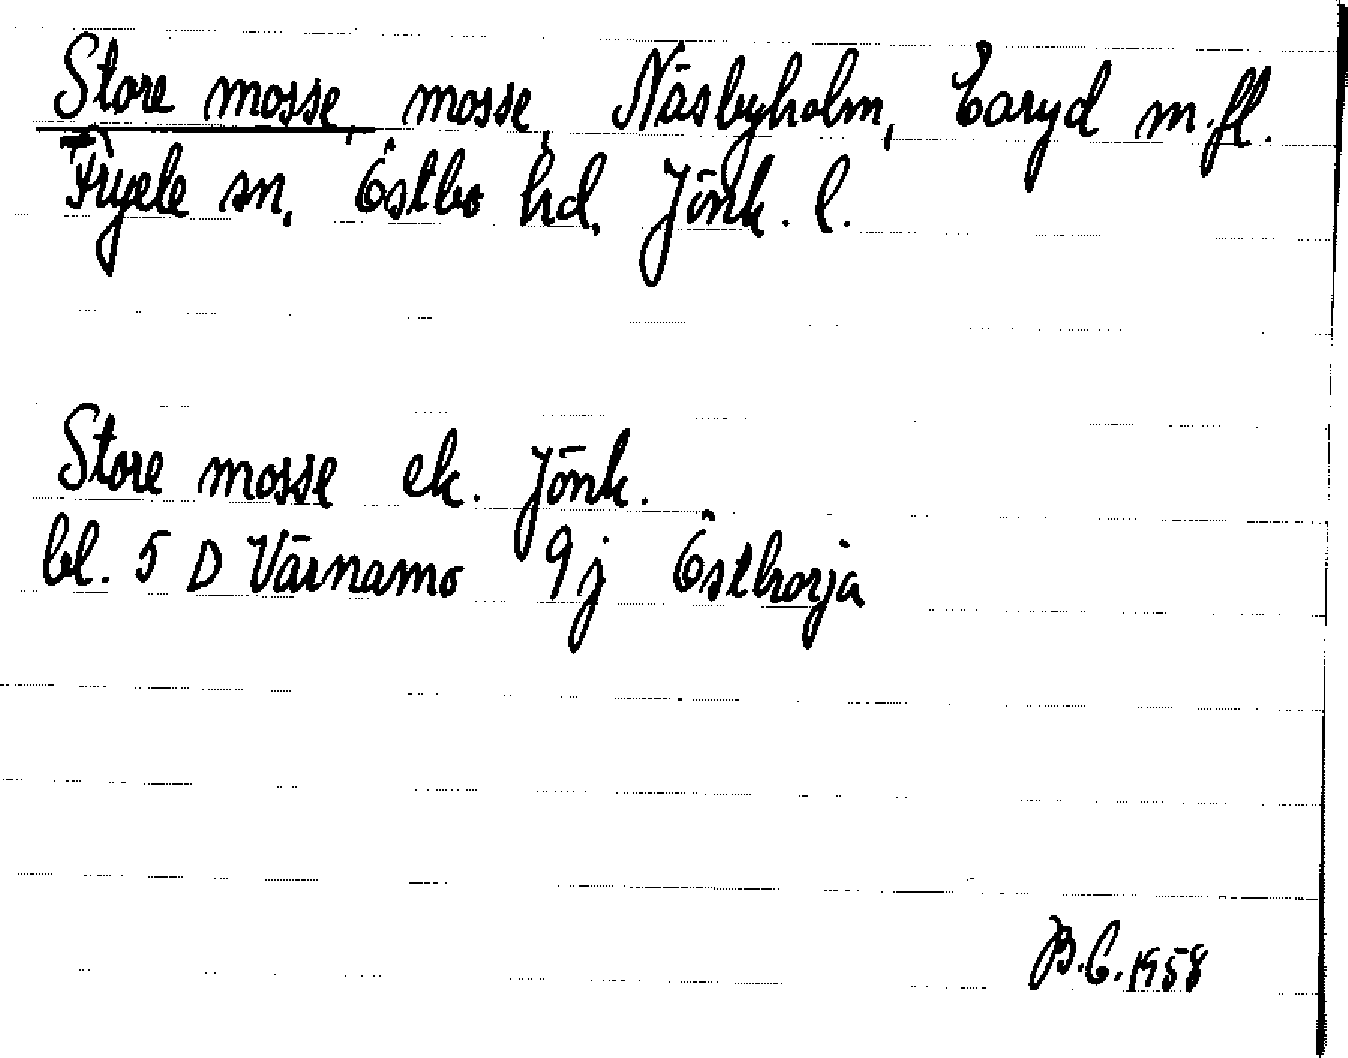 Store mosse, mosse, Näsbyholm, Èaryd m.fl.
Fryele sn, Östbo hd. Jönk. l.
Store mosse ek. Jönk.
bl. 5 D Värnamo 9j Östhorja
B.C. 1958